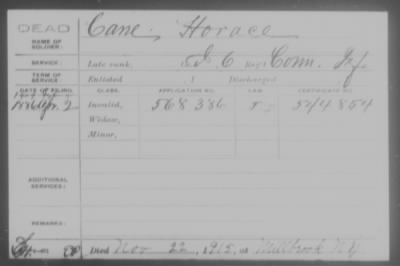 DEAD
NAME OF SOLDIER: Cane, Horace
SERVICE: Late rank, J C Reg't Conn. Inf.
TERM OF SERVICE: Enlisted , 1 Discharged
DATE OF FILING. CLASS. APPLICATION NO. LAW. CERTIFICATE NO.
1886 Apr. 2 Invalid, 568386 544854
Widow,
Minor,
ADDITIONAL SERVICES:
REMARKS:
Died Nov 22, 1915, at Millbrook N.Y.